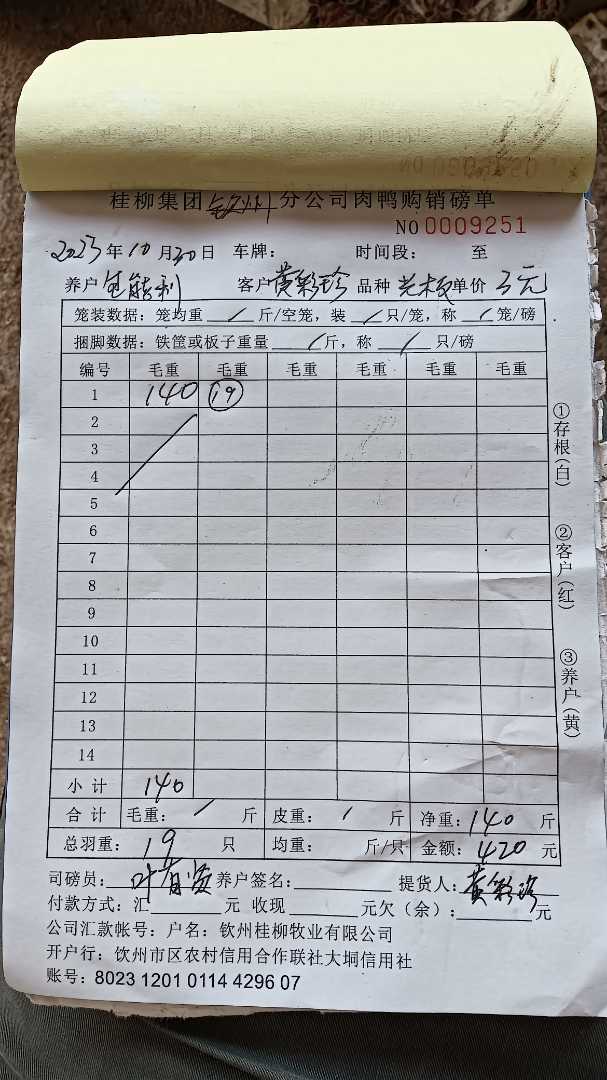 桂柳集团 钦州 分公司肉鸭购销磅单
NO 0009251
2023年10月30日 车牌: 时间段: 至
养户 客户 黄彩珍 品种 单价 3元
笼装数据: 笼均重 / 斤/空笼, 装 / 只/笼, 称 / 笼/磅
捆脚数据: 铁筐或板子重量 / 斤, 称 / 只/磅
编号 毛重 毛重 毛重 毛重 毛重 毛重
1 140 19
2
3
4
5
6
7
8
9
10
11
12
13
14
小计 140
合计 毛重: / 斤 皮重: / 斤 净重: 140 斤
总羽重: 19 只 均重: 斤/只 金额: 420 元
司磅员: 养户签名: 提货人: 黄彩珍
付款方式: 汇 元 收现 元欠(余): 元
公司汇款帐号: 户名: 钦州桂柳牧业有限公司
开户行: 钦州市区农村信用合作联社大垌信用社
账号: 8023 1201 0114 4296 07
①存根(白)
②客户(红)
③养户(黄)